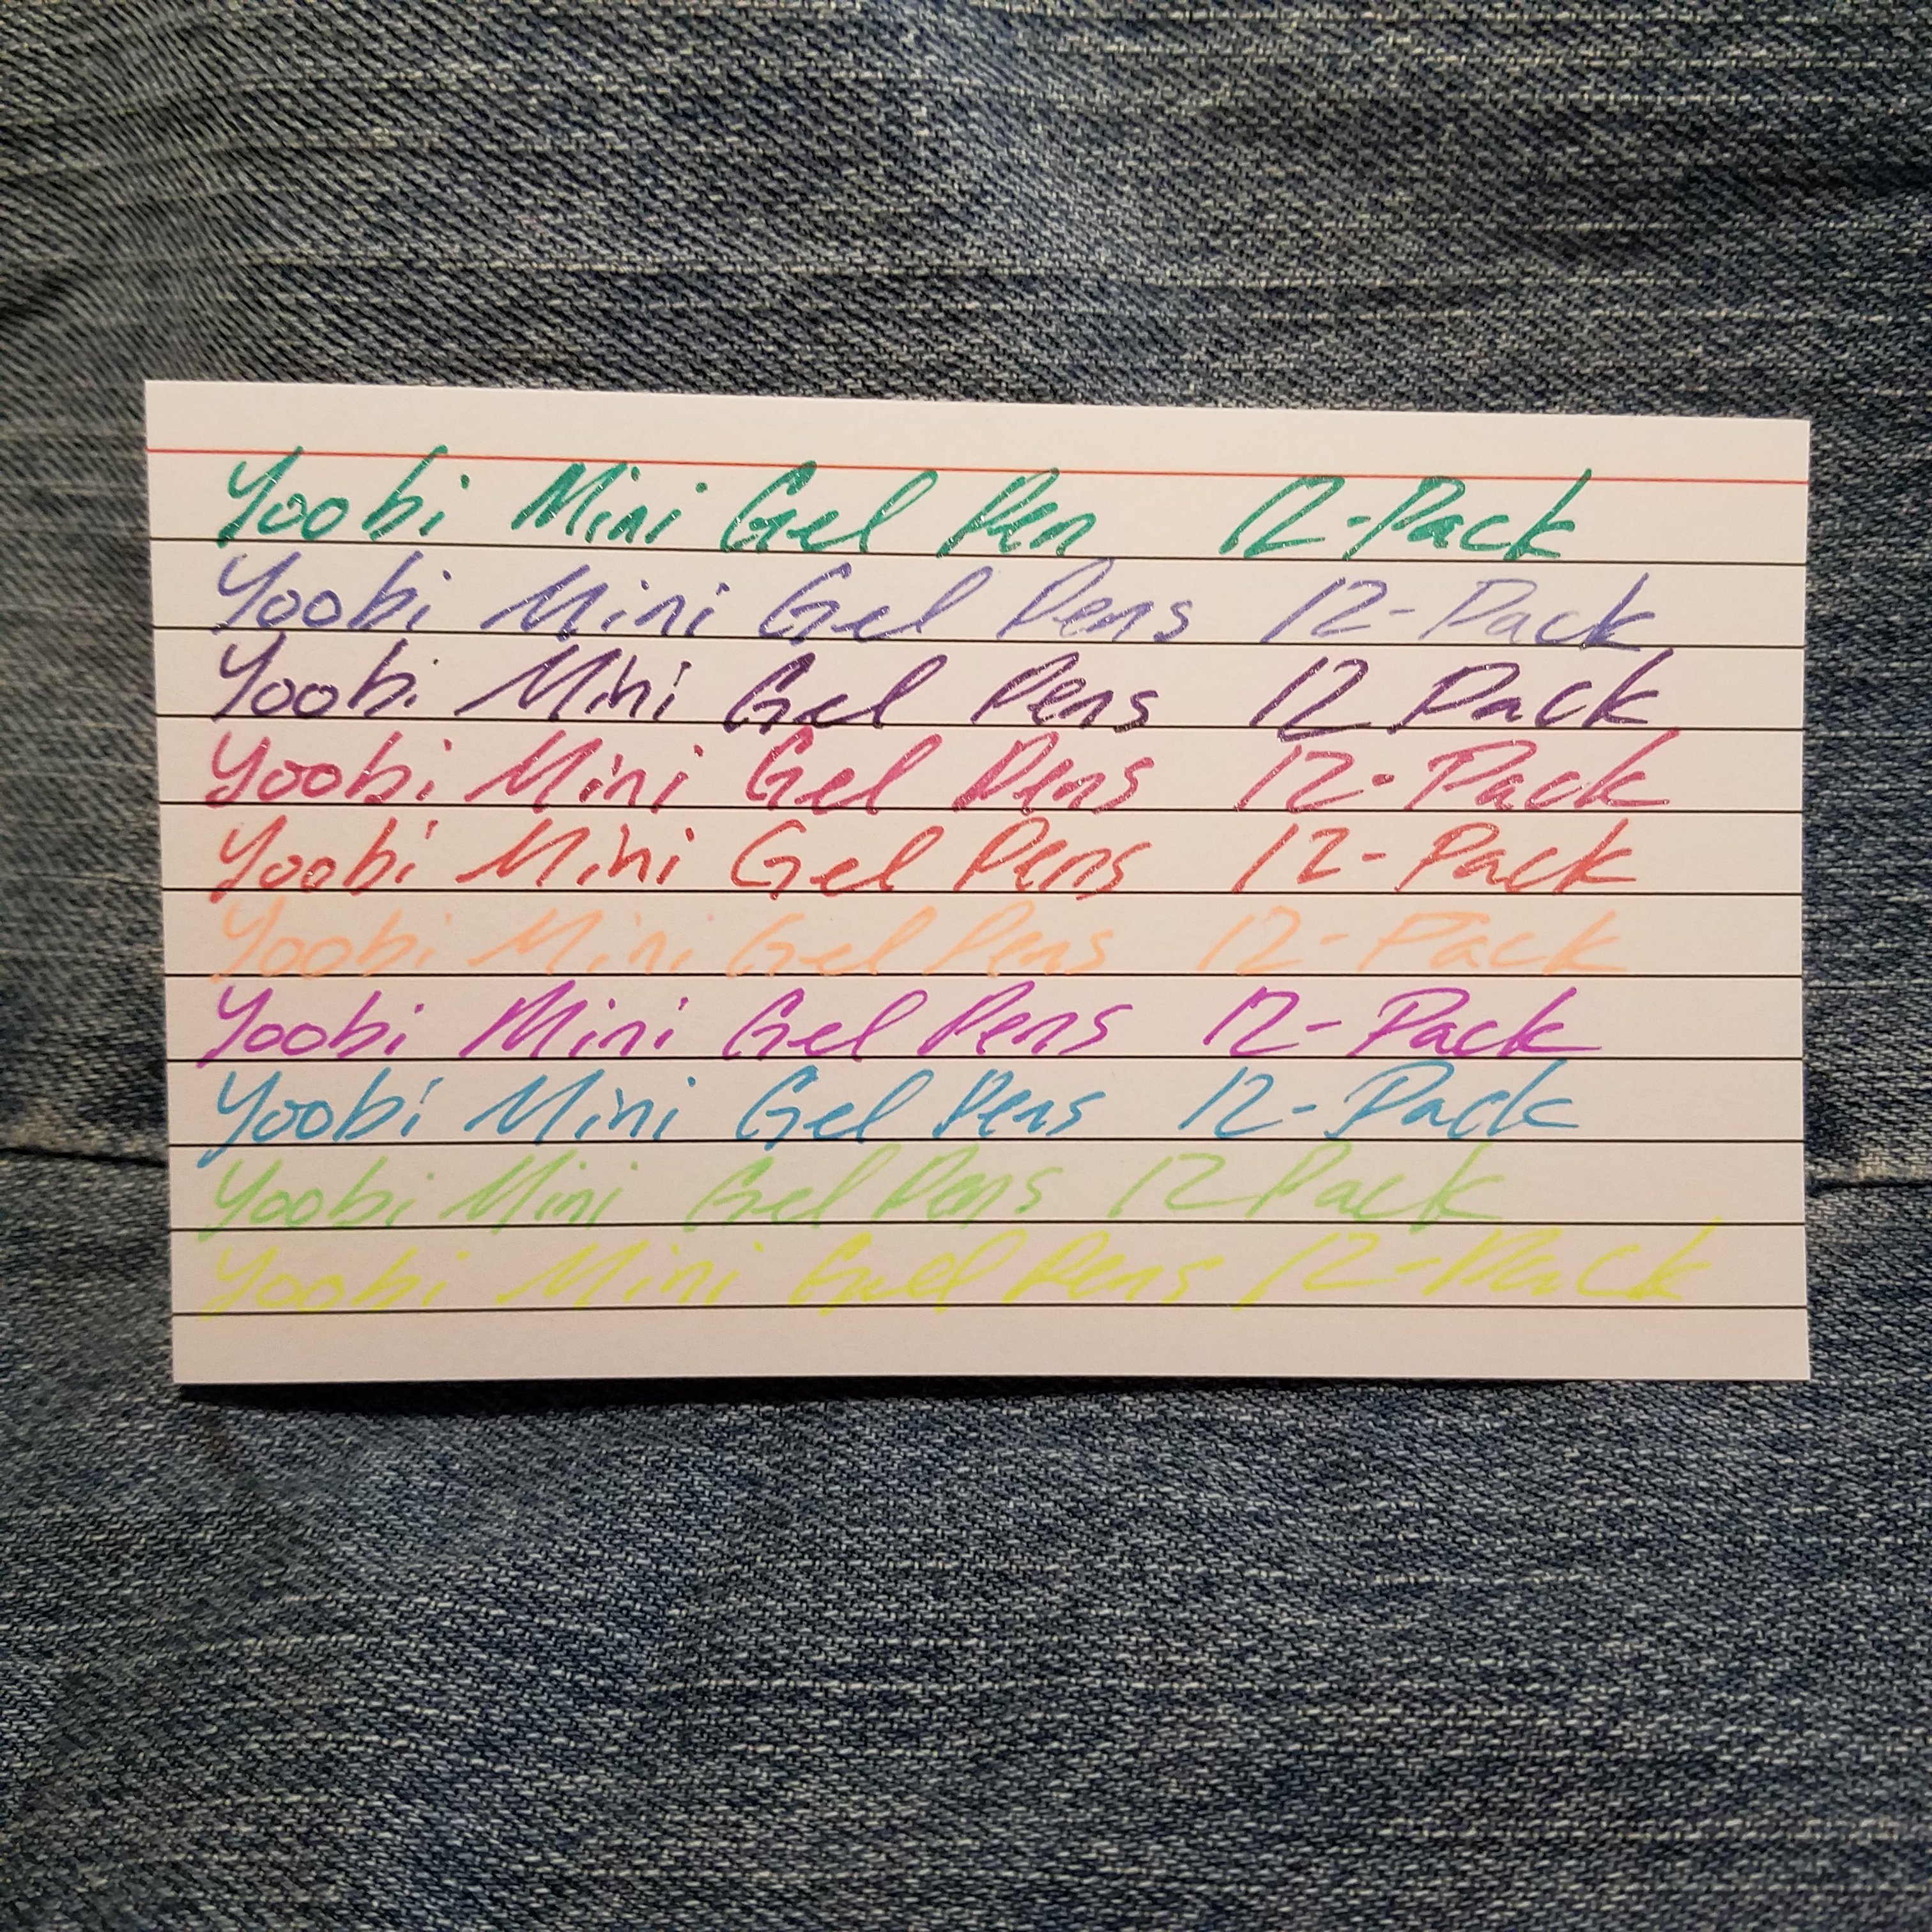 Yoobi Mini Gel Pen 12-Pack
Yoobi Mini Gel Pens 12-Pack
Yoobi Mini Gel Pens 12 Pack
Yoobi Mini Gel Pens 12-Pack
Yoobi Mini Gel Pens 12-Pack
Yoobi Mini Gel Pens 12-Pack
Yoobi Mini Gel Pens 12-Pack
Yoobi Mini Gel Pens 12-Pack
Yoobi Mini Gel Pens 12 Pack
Yoobi Mini Gel Pens 12-Pack